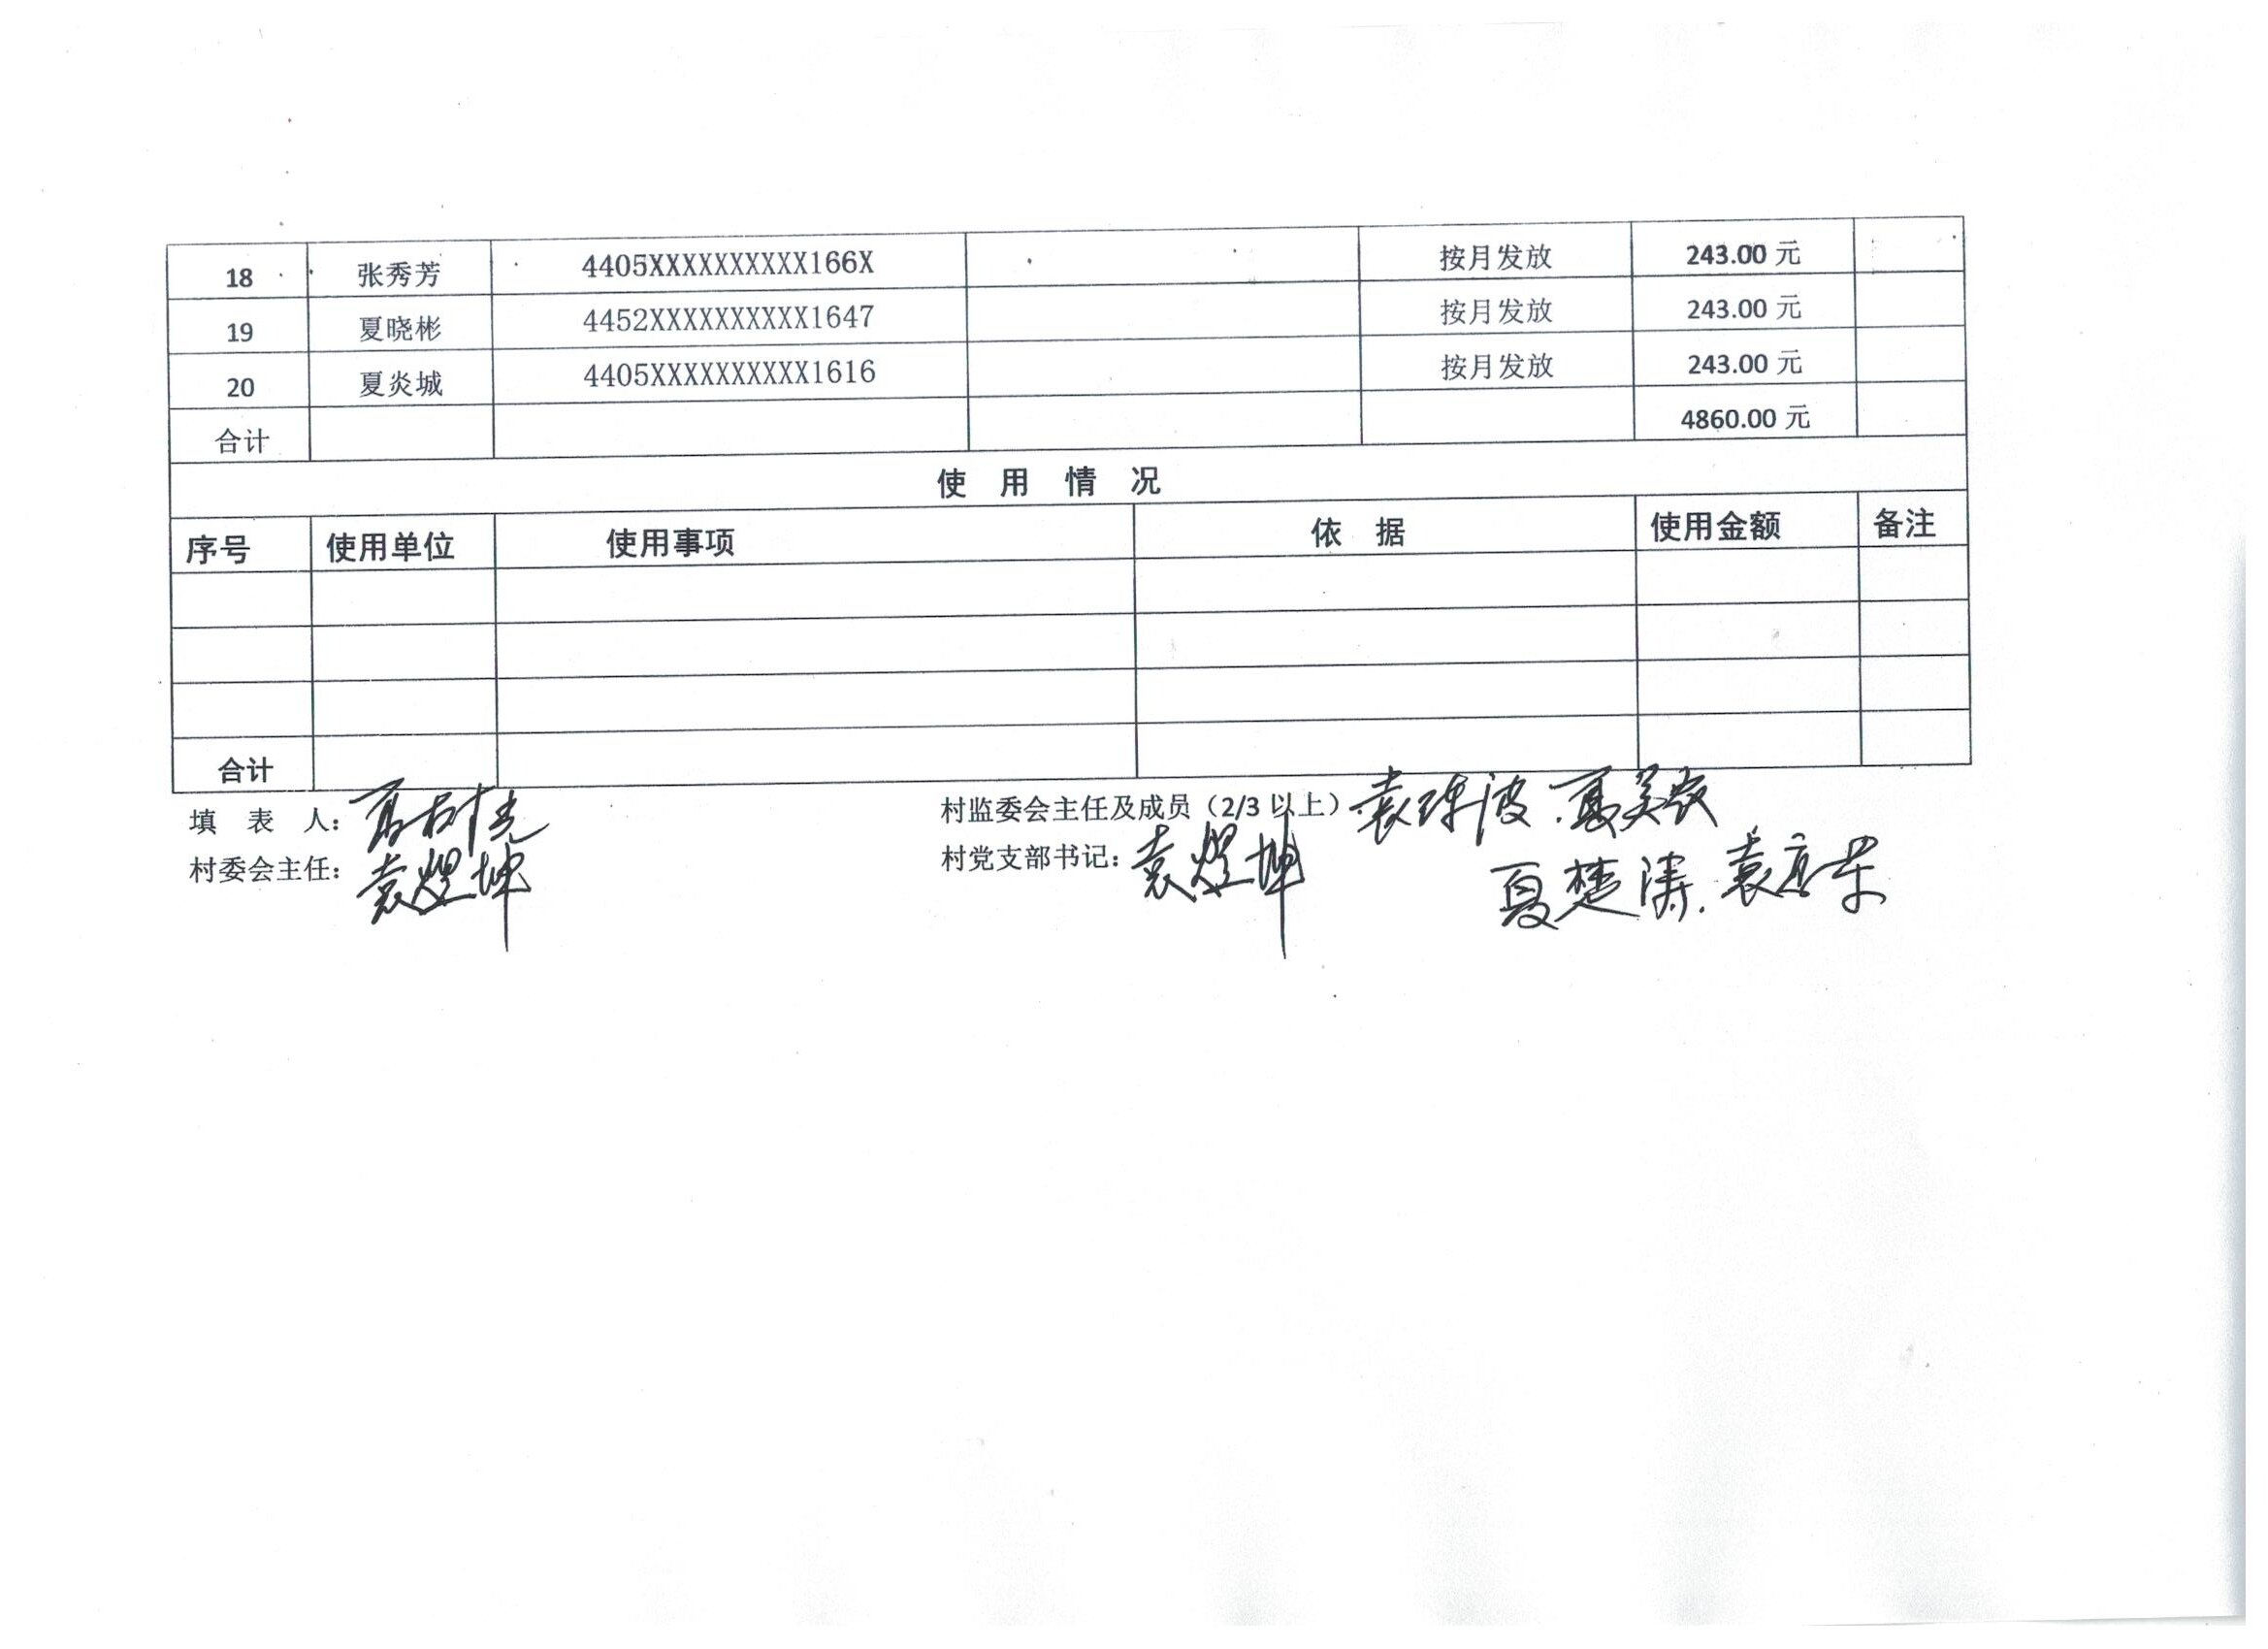 18 张秀芳 4405XXXXXXXXXX166X 按月发放 243.00 元
19 夏晓彬 4452XXXXXXXXXX1647 按月发放 243.00 元
20 夏炎城 4405XXXXXXXXXX1616 按月发放 243.00 元
合计 4860.00 元
使 用 情 况
序号 使用单位 使用事项 依 据 使用金额 备注
合计
填 表 人: 村监委会主任及成员（2/3 以上） 袁 波 夏
村委会主任: 袁煜坤 村党支部书记: 袁煜坤 夏楚涛 袁